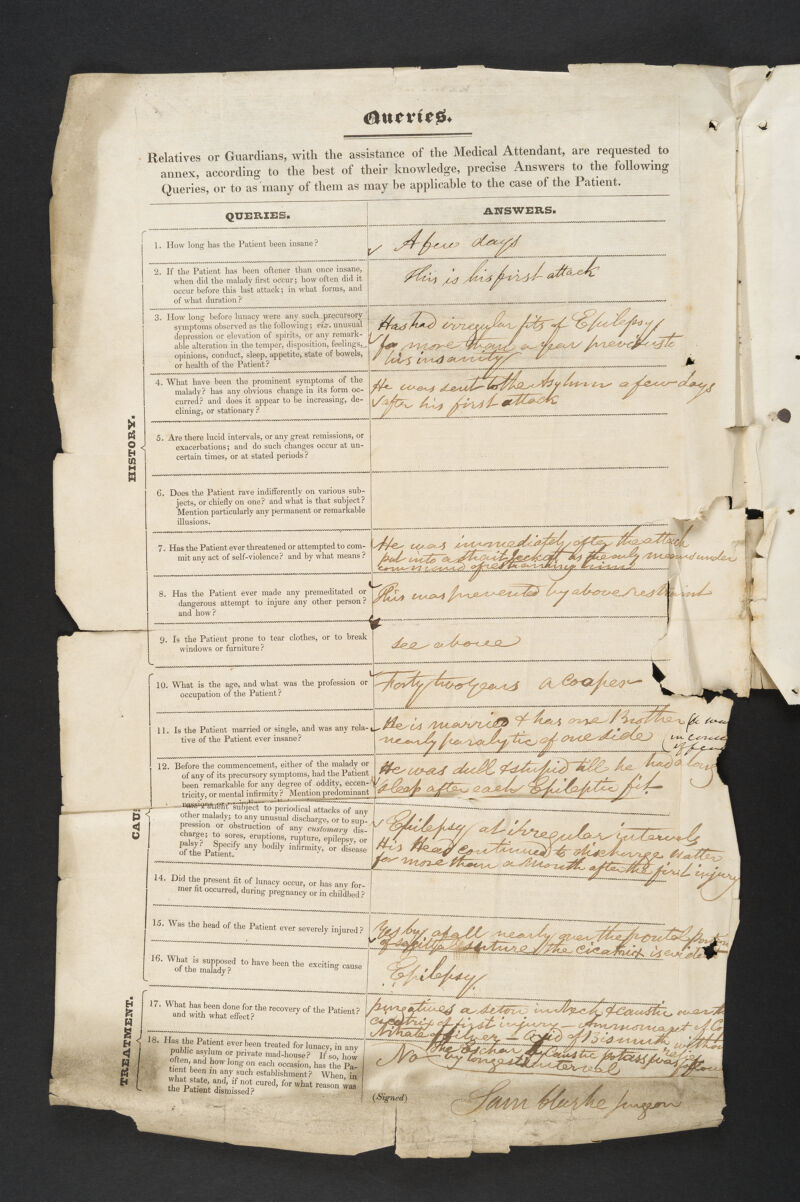 Queries.
Relatives or Guardians, with the assistance of the Medical Attendant, are requested to
annex, according to the best of their knowledge, precise Answers to the following
Queries, or to as many of them as may be applicable to the case of the Patient.
QUERIES.
ANSWERS.
HISTORY.
1. How long has the Patient been insane?
A few days
2. If the Patient has been oftener than once insane,
when did the malady first occur; how often did it
occur before this last attack; in what forms, and
of what duration?
This is his first attack
3. How long before lunacy were any such precursory
symptoms observed as the following; viz. unusual
depression or elevation of spirits, or any remark-
able alteration in the temper, disposition, feelings,
opinions, conduct, sleep, appetite, state of bowels,
or health of the Patient?
Has had irregular fits of Epilepsy
for more than a year previous to
his insanity
4. What have been the prominent symptoms of the
malady? has any obvious change in its form oc-
curred? and does it appear to be increasing, de-
clining, or stationary?
He was sent to the Asylum a few days
after his first attack
5. Are there lucid intervals, or any great remissions, or
exacerbations; and do such changes occur at un-
certain times, or at stated periods?
6. Does the Patient rave indifferently on various sub-
jects, or chiefly on one? and what is that subject?
Mention particularly any permanent or remarkable
illusions.
7. Has the Patient ever threatened or attempted to com-
mit any act of self-violence? and by what means?
He was immediately after the attack
put into a strait jacket as the only means under
of restraining him
8. Has the Patient ever made any premeditated or
dangerous attempt to injure any other person?
and how?
This was prevented by above restraint
9. Is the Patient prone to tear clothes, or to break
windows or furniture?
See above
CAUS
10. What is the age, and what was the profession or
occupation of the Patient?
Forty two years a Cooper
11. Is the Patient married or single, and was any rela-
tive of the Patient ever insane?
He is married & has one Brother
nearly paralytic of one side
12. Before the commencement, either of the malady or
of any of its precursory symptoms, had the Patient
been remarkable for any degree of oddity, eccen-
tricity, or mental infirmity? Mention predominant
He was dull & stupid till he had a long
sleep after each Epileptic fit
subject to periodical attacks of any
other malady; to any unusual discharge, or to sup-
pression or obstruction of any customary dis-
charge; to sores, eruptions, rupture, epilepsy, or
palsy? Specify any bodily infirmity, or disease
of the Patient.
Epilepsy at irregular intervals
His Head continued to discharge Matter
for more than a Month after the first injury
14. Did the present fit of lunacy occur, or has any for-
mer fit occurred, during pregnancy or in childbed?
15. Was the head of the Patient ever severely injured?
Yes by a fall nearly over the frontal Portion
of sagittal suture the cicatrix is evident
16. What is supposed to have been the exciting cause
of the malady?
Epilepsy
TREATMENT.
17. What has been done for the recovery of the Patient?
and with what effect?
purgatives a seton in Neck & caustic
cicatrix of first injury
Nitrate of Silver of Bismuth
18. Has the Patient ever been treated for lunacy, in any
public asylum or private mad-house? If so, how
often, and how long on each occasion, has the Pa-
tient been in any such establishment? When, in
what state, and, if not cured, for what reason was
the Patient dismissed?
No
The Eschar by Caustic potass was
by longest interval
(Signed)
Sam Clarke Surgeon